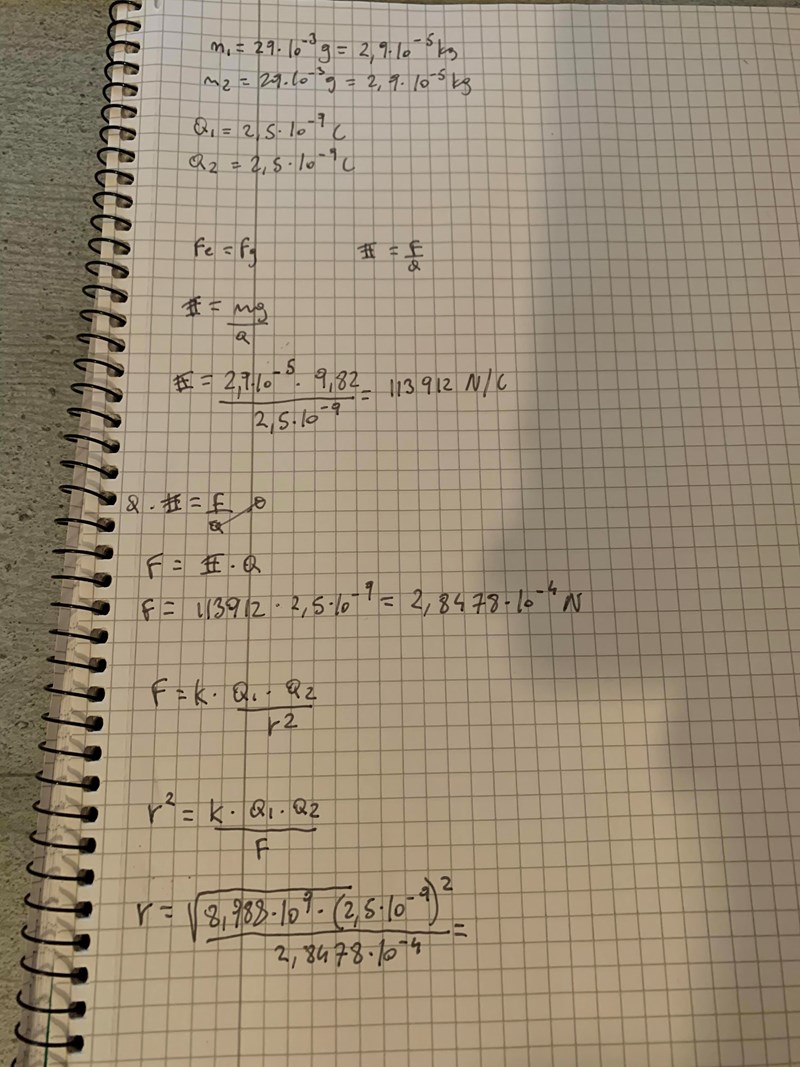 m₁ = 29·10⁻³g = 2,9·10⁻⁵kg
m₂ = 29·10⁻³g = 2,9·10⁻⁵kg
Q₁ = 2,5·10⁻⁹C
Q₂ = 2,5·10⁻⁹C
Fe = Fg E = F/Q
E = mg/Q
E = 2,9·10⁻⁵ · 9,82 / 2,5·10⁻⁹ = 113 912 N/C
Q · E = F/Q · Q
F = E · Q
F = 113912 · 2,5·10⁻⁹ = 2,8478·10⁻⁴ N
F = k · Q₁ · Q₂ / r²
r² = k · Q₁ · Q₂ / F
r = √(8,988·10⁹ · (2,5·10⁻⁹)² / 2,8478·10⁻⁴) =